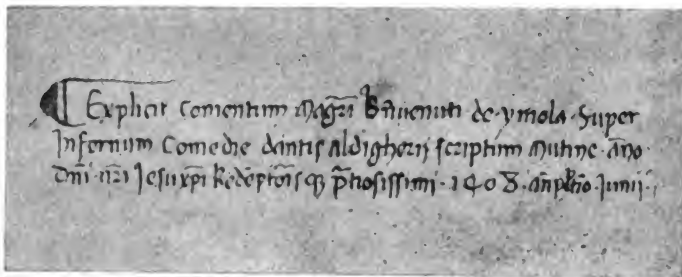 Explicit Comentum Magrí Bnuenuti de·ymola·Super
Infernum Comedie dantis Aldigherij scriptum Mutine·año·
Dñi·nrí Jesu xpi Redeptoris p̄tiosissimi·1408· Junij·